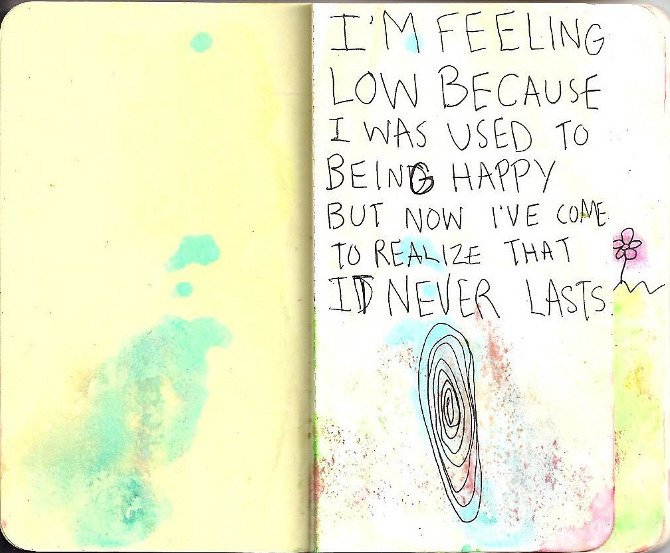 I'M FEELING
LOW BECAUSE
I WAS USED TO
BEING HAPPY
BUT NOW I'VE COME
TO REALIZE THAT
IT NEVER LASTS.